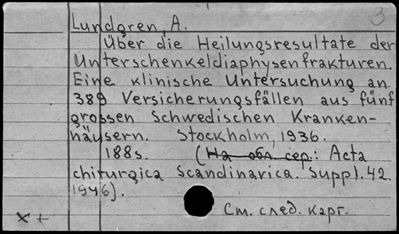 3
Lundgren, A.
Über die Heilungsresultate der
Unterschenkeldiaphysenfrakturen.
Eine klinische Untersuchung an
389 Versicherungsfällen aus fünf
grossen Schwedischen Kranken-
häusern. Stockholm, 1936.
188s. (На обл. сер: Acta
chirurgica Scandinavica. Suppl. 42.
1946).
х +
См. след. карт.